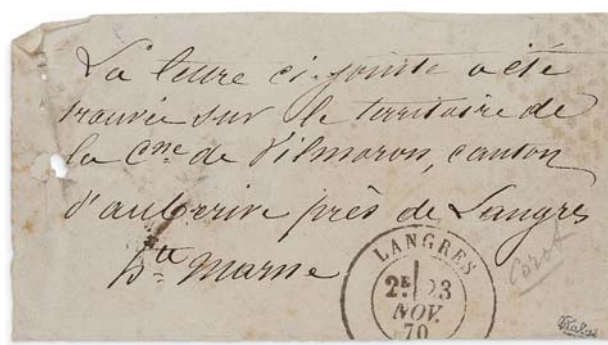 La lettre ci-jointe a été
trouvée sur le territoire de
la Cne de Vilmoron, canton
d'auberive près de Langres
hte marne
LANGRES
2E 23
NOV.
70
Corot